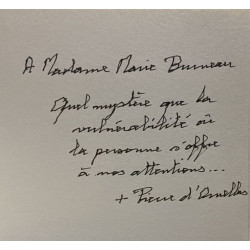 A Madame Marie Bruneau
Quel mystère que la
vulnérabilité où
la personne s'offre
à nos attentions...
+ Pierre d'Ornellas